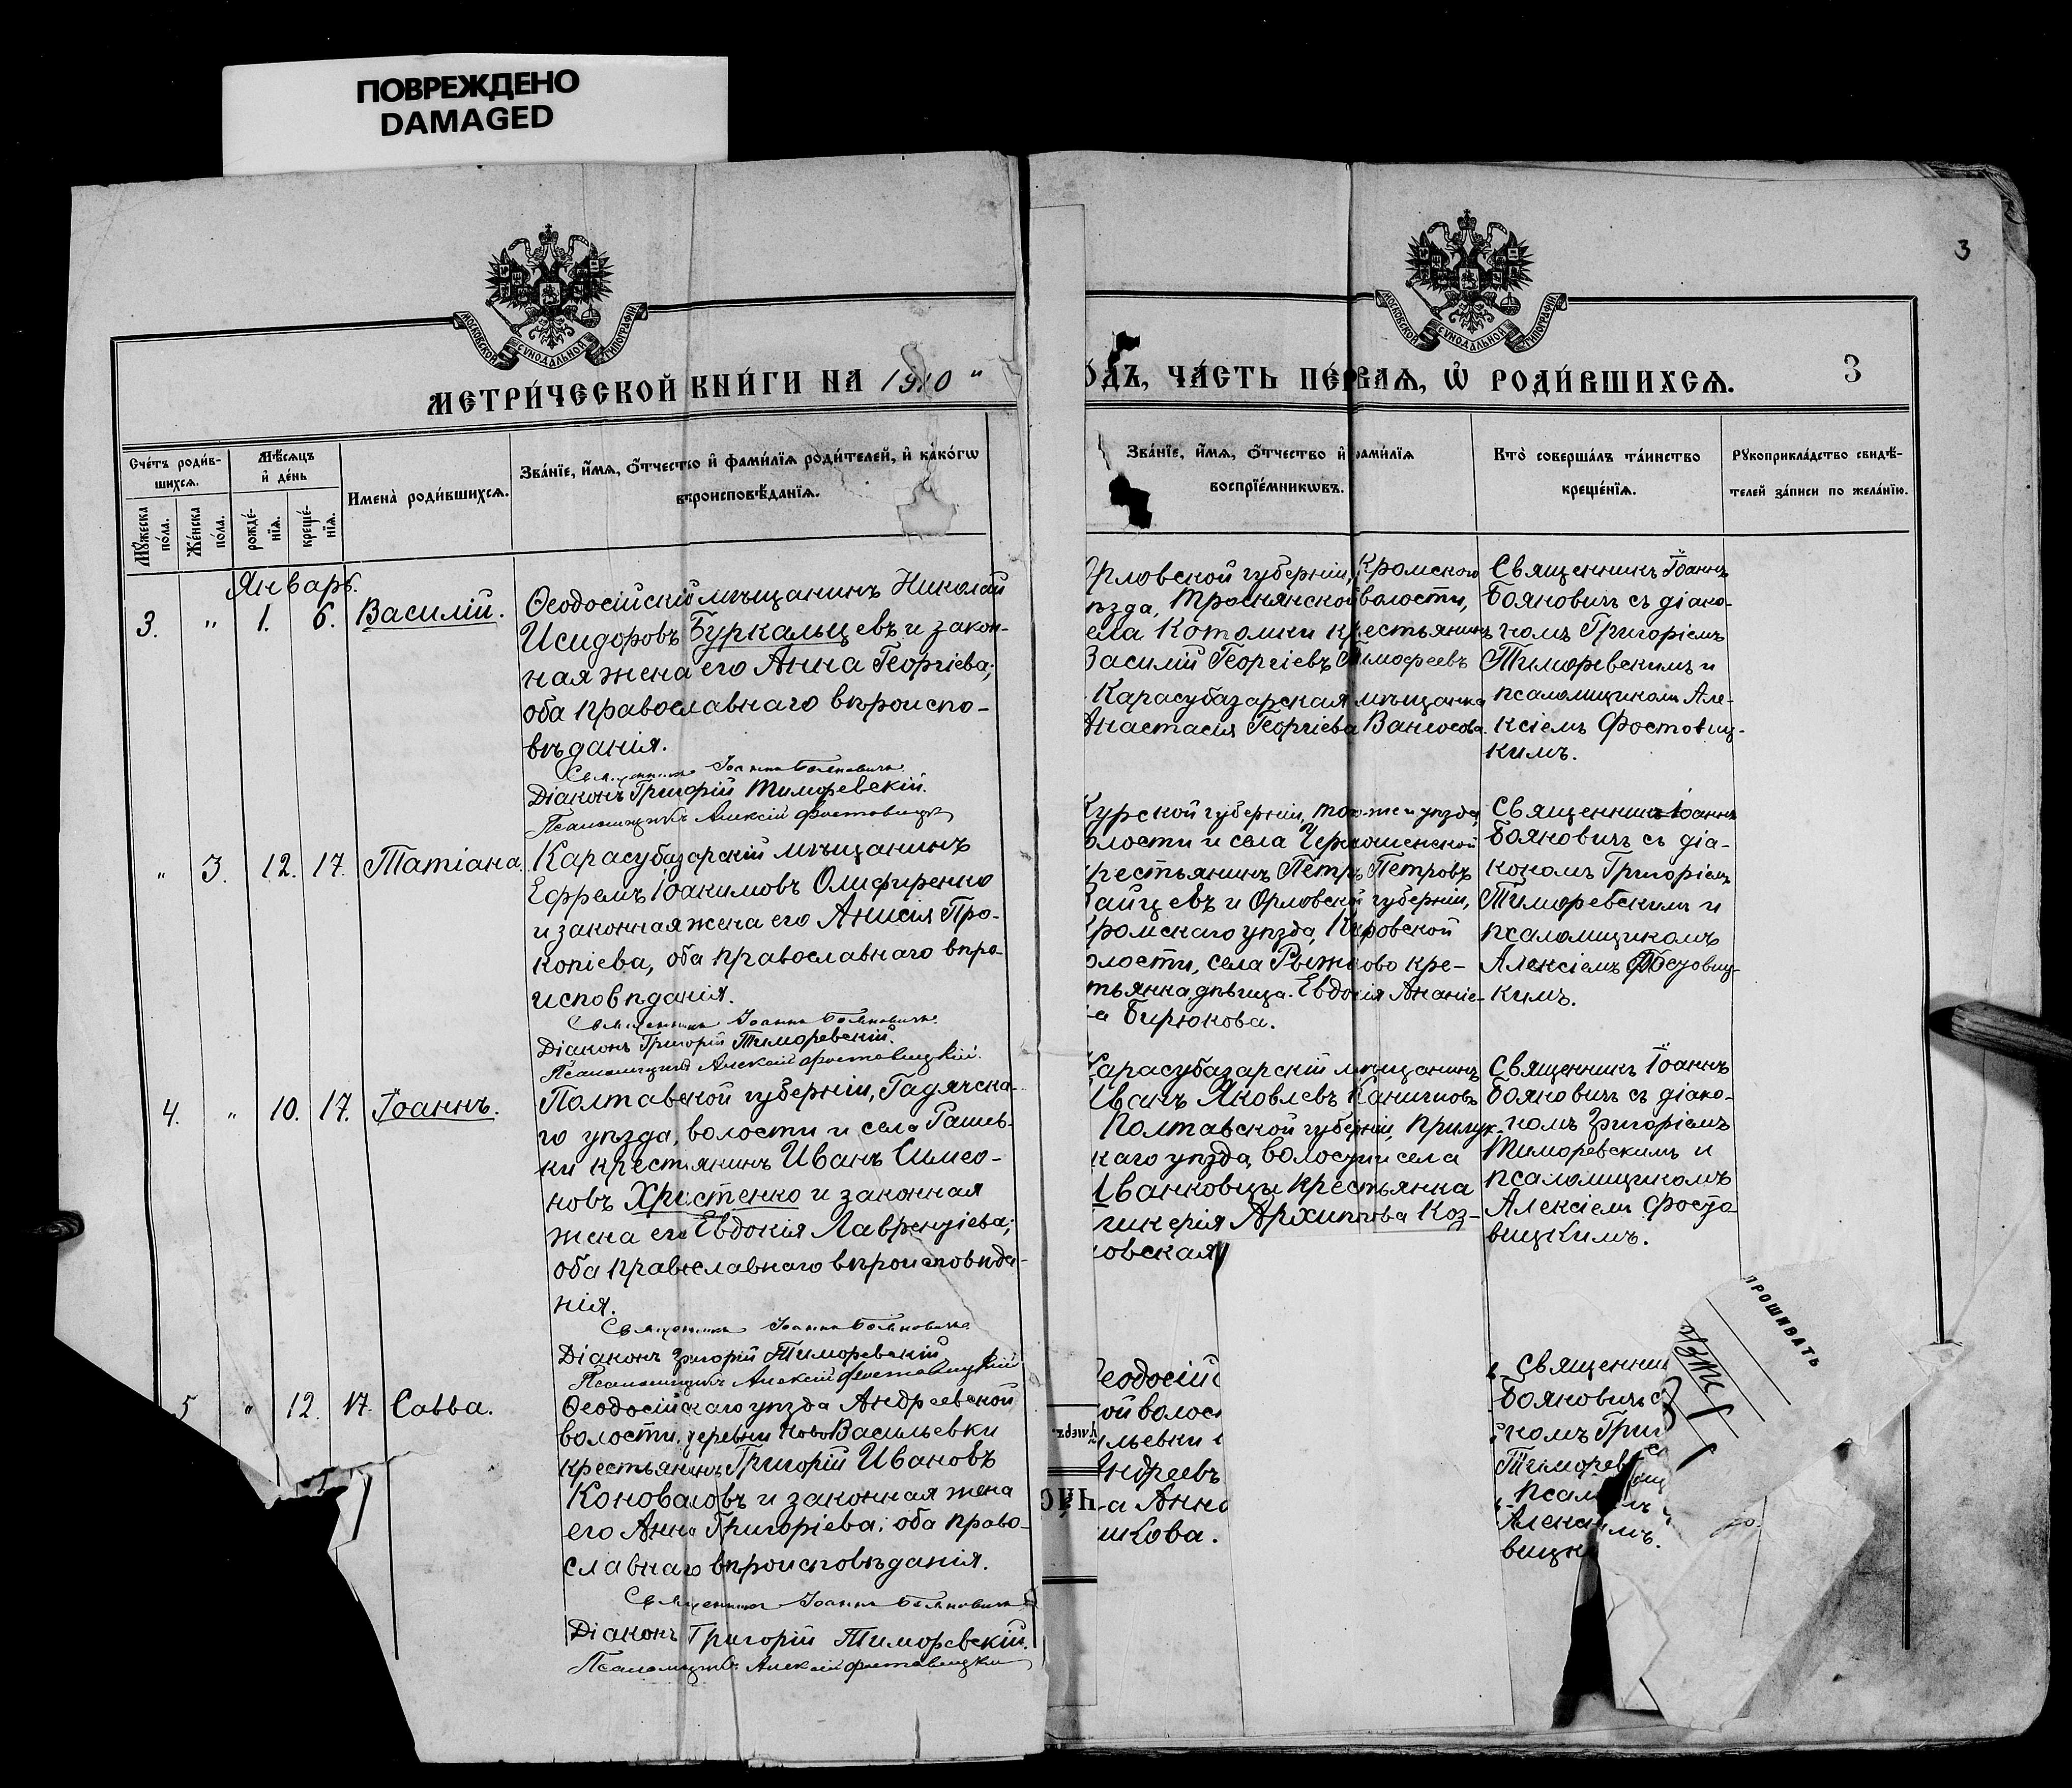 ПОВРЕЖДЕНО
DAMAGED
3
МОСКОВСКОЙ СУНОДАЛЬНОЙ ТИПОГРАФІИ
МОСКОВСКОЙ СУНОДАЛЬНОЙ ТИПОГРАФІИ
МЕТРИ́ЧЕСКОЙ КНИ́ГИ НА 1910 "
ОДЪ, ЧА́СТЬ ПЕ́РВАѦ, Ѡ҆ РОДИ́ВШИХСѦ.
3
Сче́тъ роди́в-
шихсѧ.
Мꙋ́жеска
по́ла.
Же́нска
по́ла.
Мѣ́сѧцъ
и҆ де́нь
рожде́-
нїѧ.
креще́-
нїѧ.
Имена̀ роди́вшихсѧ.
Зва́нїе, и҆́мѧ, ѻ҆́тчество и҆ фами́лїѧ роди́телей, и҆ како́гѡ
вѣроисповѣ́данїѧ.
Зва́нїе, и҆́мѧ, ѻ҆́тчество и҆ фами́лїѧ
воспрїе́мникѡвъ.
Кто̀ соверша́лъ та́инство
креще́нїѧ.
Рꙋкоприкла́дство свидѣ́-
телей за́писи по жела́нїю.
Январь.
3. " 1. 6. Василій.
Ѳеодосійскій мѣщанинъ Николай
Исидоровъ Буркальцевъ и закон-
ная жена его Анна Георгіева;
оба православнаго вѣроиспо-
вѣданія.
Священникъ Іоаннъ Бояновичъ
Діаконъ Григорій Тиморевскій.
Псаломщикъ Алексій Фостовицкій
Орловской губерніи, Кромского
ѣзда, Троснянской волости,
села Котомки крестьянинъ
Василій Георгіевъ Тимофеевъ
Карасубазарская мѣщанка
Анастасія Георгіева
Священникъ Іоаннъ
Бояновичъ съ діако-
номъ Григоріемъ
Тиморевскимъ и
псаломщикомъ Але-
ксіемъ Фостовиц-
кимъ.
" 3. 12. 17. Татіана.
Карасубазарскій мѣщанинъ
Ефремъ Іоакимовъ Олифиренко
и законная жена его Анисія Про-
копіева, оба православнаго вѣро-
исповѣданія.
Священникъ Іоаннъ Бояновичъ
Діаконъ Григорій Тиморевскій.
Псаломщикъ Алексій Фостовицкій.
Курской губерніи, того же уѣзда,
олости и села
рестьянинъ Петръ Петровъ
Зайцевъ и Орловской губерніи,
ромскаго уѣзда,
олости, села Рыжково кре-
тьянка дѣвица Евдокія Ананіе-
а Бирюкова.
Священникъ Іоаннъ
Бояновичъ съ діа-
кономъ Григоріемъ
Тиморевскимъ и
псаломщикомъ
Алексіемъ Фостовиц-
кимъ.
4. " 10. 17. Іоаннъ.
Полтавской губерніи, Гадячска-
го уѣзда, волости и села Рашев-
ки крестьянинъ Иванъ Симео-
новъ Христенко и законная
жена его Евдокія Лаврентіева;
оба православнаго вѣроисповѣда-
нія.
Священникъ Іоаннъ Бояновичъ
Діаконъ Григорій Тиморевскій
Псаломщикъ Алексій Фостовицкій
Карасубазарскій мѣщанинъ
Иванъ Яковлевъ
Полтавской губерніи, Прилук-
каго уѣзда, волости и села
Иванковцы крестьянка
ликерія Архиппова Коз-
ловская
Священникъ Іоаннъ
Бояновичъ съ діако-
номъ Григоріемъ
Тиморевскимъ и
псаломщикомъ
Алексіемъ Фосто-
вицкимъ.
5 " 12. 17. Савва.
Ѳеодосійскаго уѣзда Андреевской
волости, деревни НовоВасильевки
крестьянинъ Григорій Ивановъ
Коноваловъ и законная жена
его Анна Григоріева; оба право-
славнаго вѣроисповѣданія.
Священникъ Іоаннъ Бояновичъ
Діаконъ Григорій Тиморевскій.
Псаломщикъ Алексій Фостовицкій
еодосій
ой волос
льевки
Андреевъ
а Анна
шкова.
Священни
Бояновичъ с
номъ Григ
Тиморев
псал
Алекс
вицк
ПРОШИВАТЬ